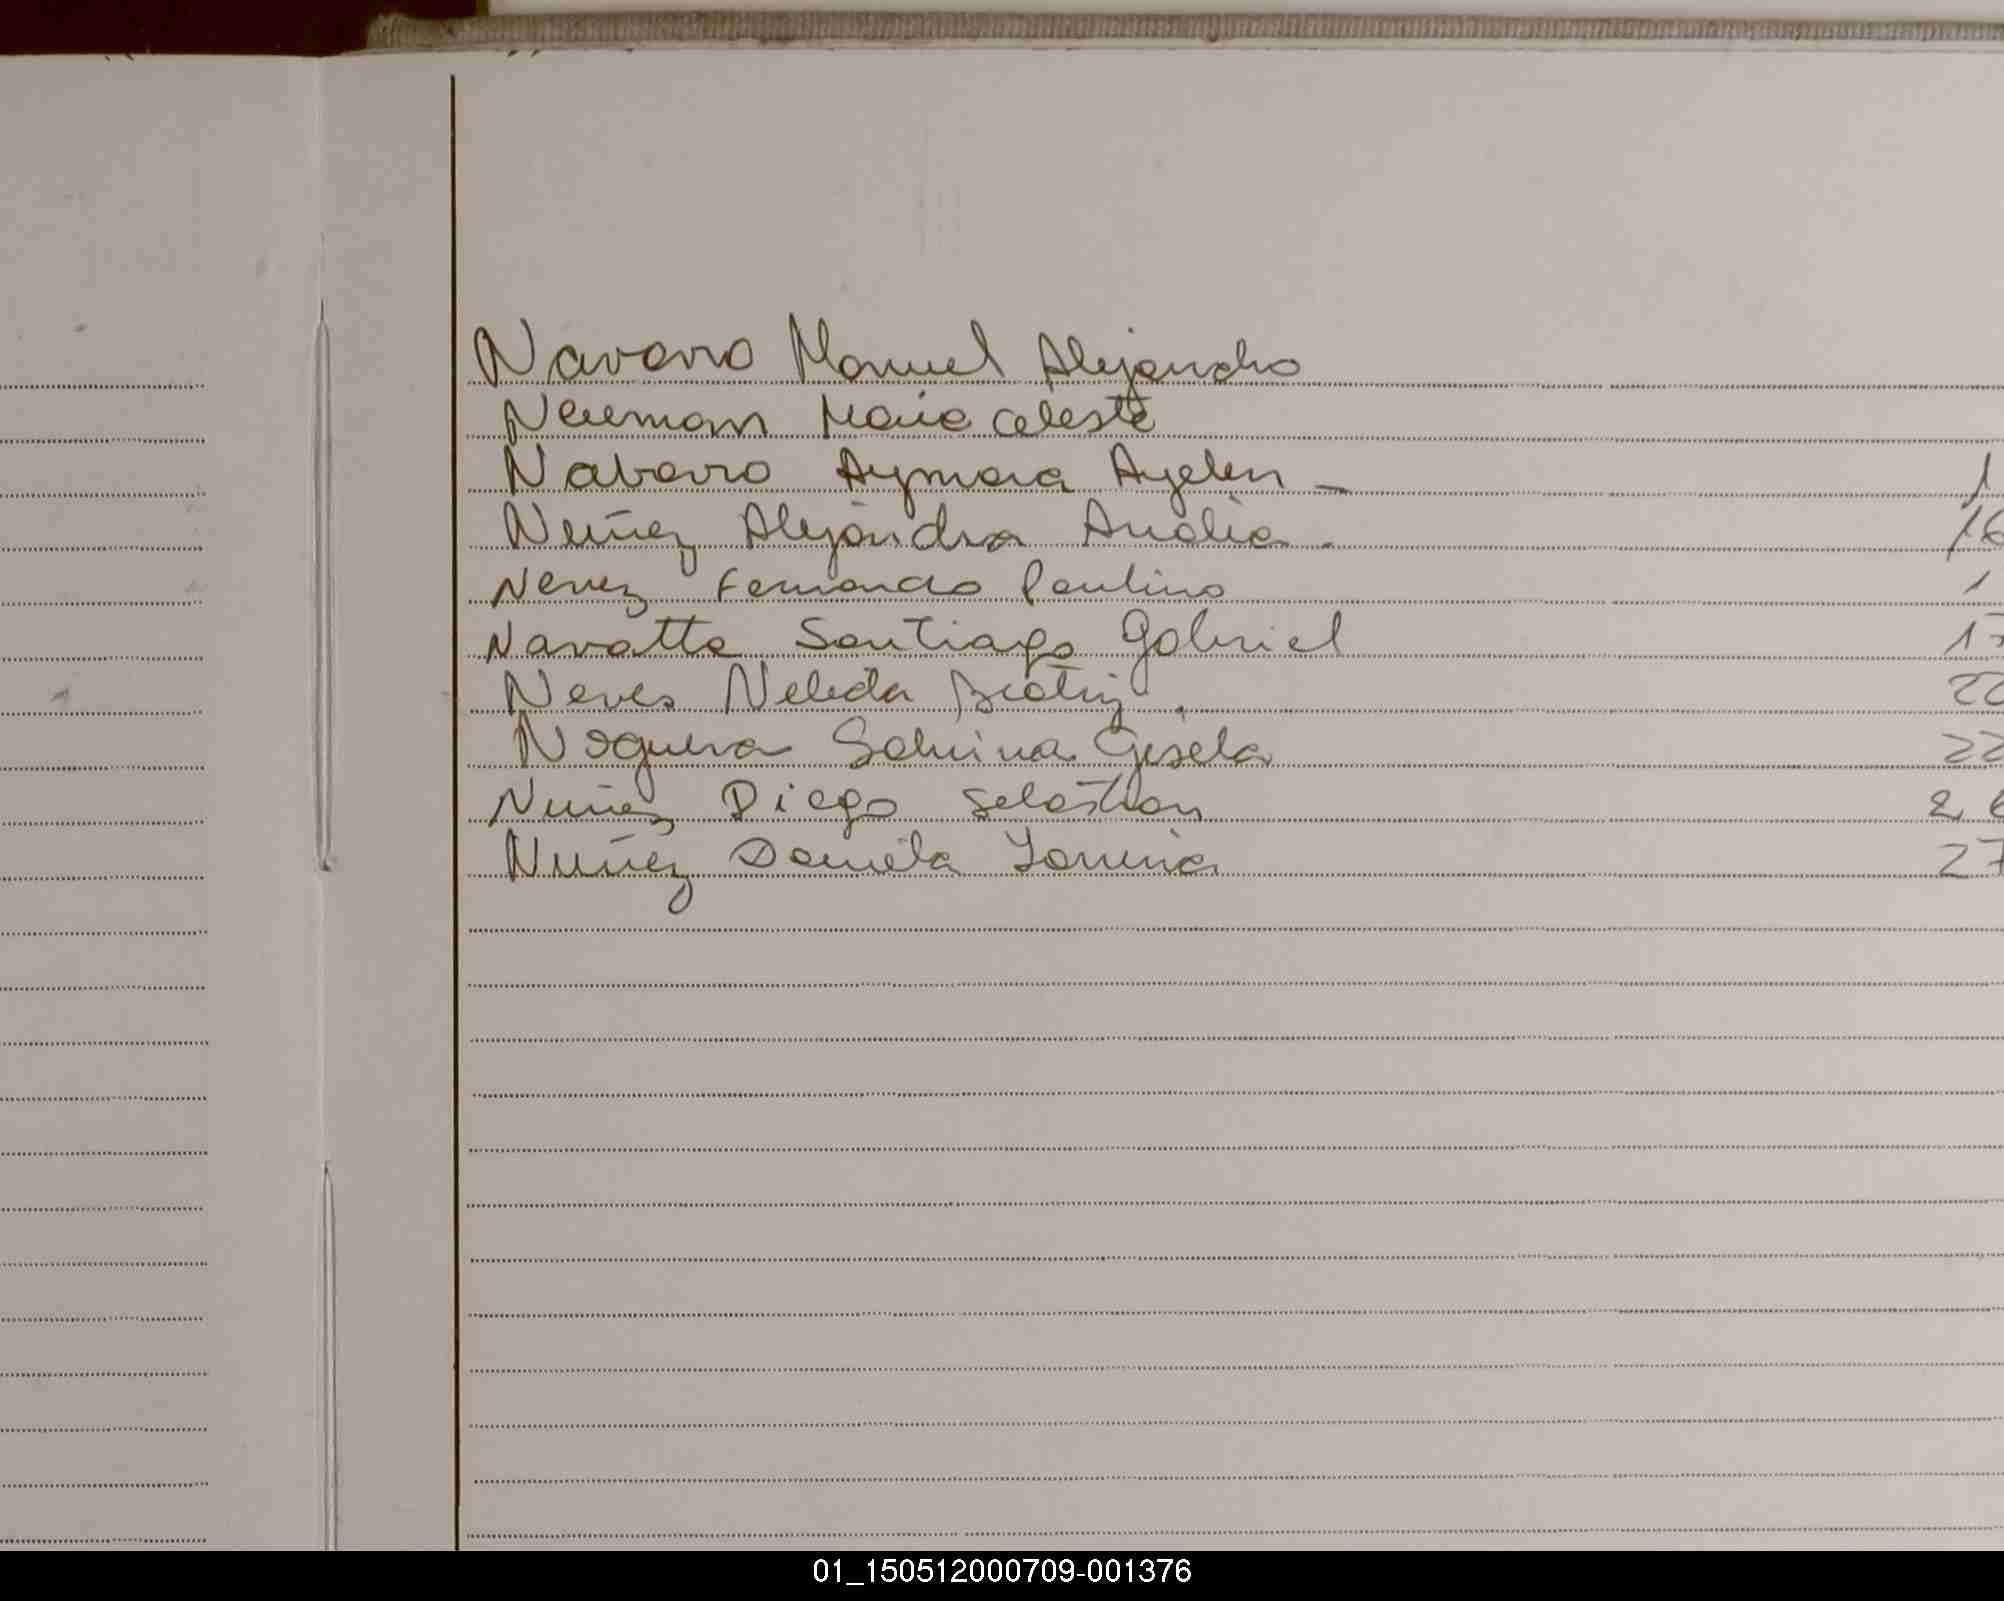 Navarro Manuel Alejandro
Neumann Maria Celeste
Nabarro Aymara Ayelen -
Nuñez Alejandra Analia .
Nevez Fernando Paulino
Navatta Santiago Gabriel
Neves Nelida Beatriz .
Noguera Sabrina Gisela
Nuñez Diego Sebastian
Nuñez Daniela Yanina
01_150512000709-001376